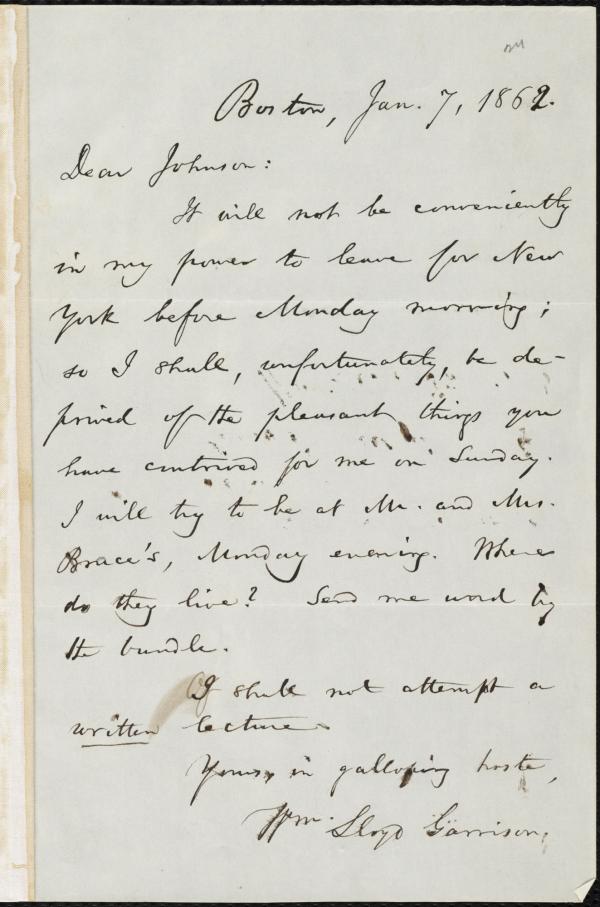 Boston, Jan. 7, 1862.
Dear Johnson:
It will not be conveniently
in my power to leave for New
York before Monday morning;
so I shall, unfortunately, be de-
prived of the pleasant things you
have contrived for me on Sunday.
I will try to be at Mr. and Mrs.
Brace's, Monday evening. Where
do they live? Send me word by
the bundle.
I shall not attempt a
written lecture.
Yours, in galloping haste,
Wm. Lloyd Garrison.